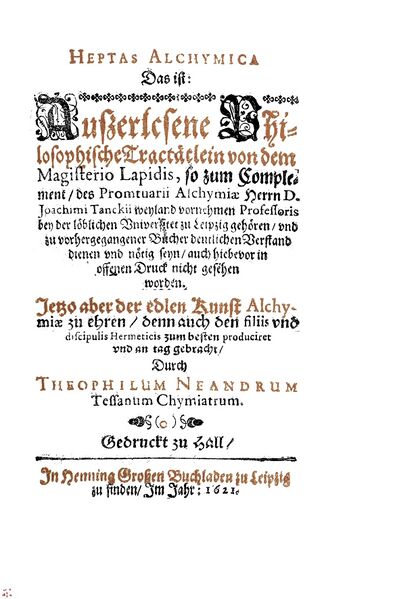 HEPTAS ALCHYMICA
Das ist:
Außerlesene Phi-
losophische Tractätlein von dem
Magisterio Lapidis, so zum Comple-
ment / des Promtuarii Alchymiæ Herrn D.
Joachimi Tanckii weyland vornehmen Professoris
bey der löblichen Vniversitet zu Leipzig gehören / vnd
zu vorhergegangener Bücher deutlichen Verstand
dienen vnd nötig seyn / auch hiebevor in
offenen Druck nicht gesehen
worden.
Jetzo aber der edlen Kunst Alchy-
miæ zu ehren / denn auch den filiis vnd
discipulis Hermeticis zum besten produciret
vnd an tag gebracht /
Durch
THEOPHILUM NEANDRUM
Tessantum Chymiatrum.
Gedruckt zu Hall /
In Henning Großen Buchladen zu Leipzig
zu finden / Im Jahr: 1621.